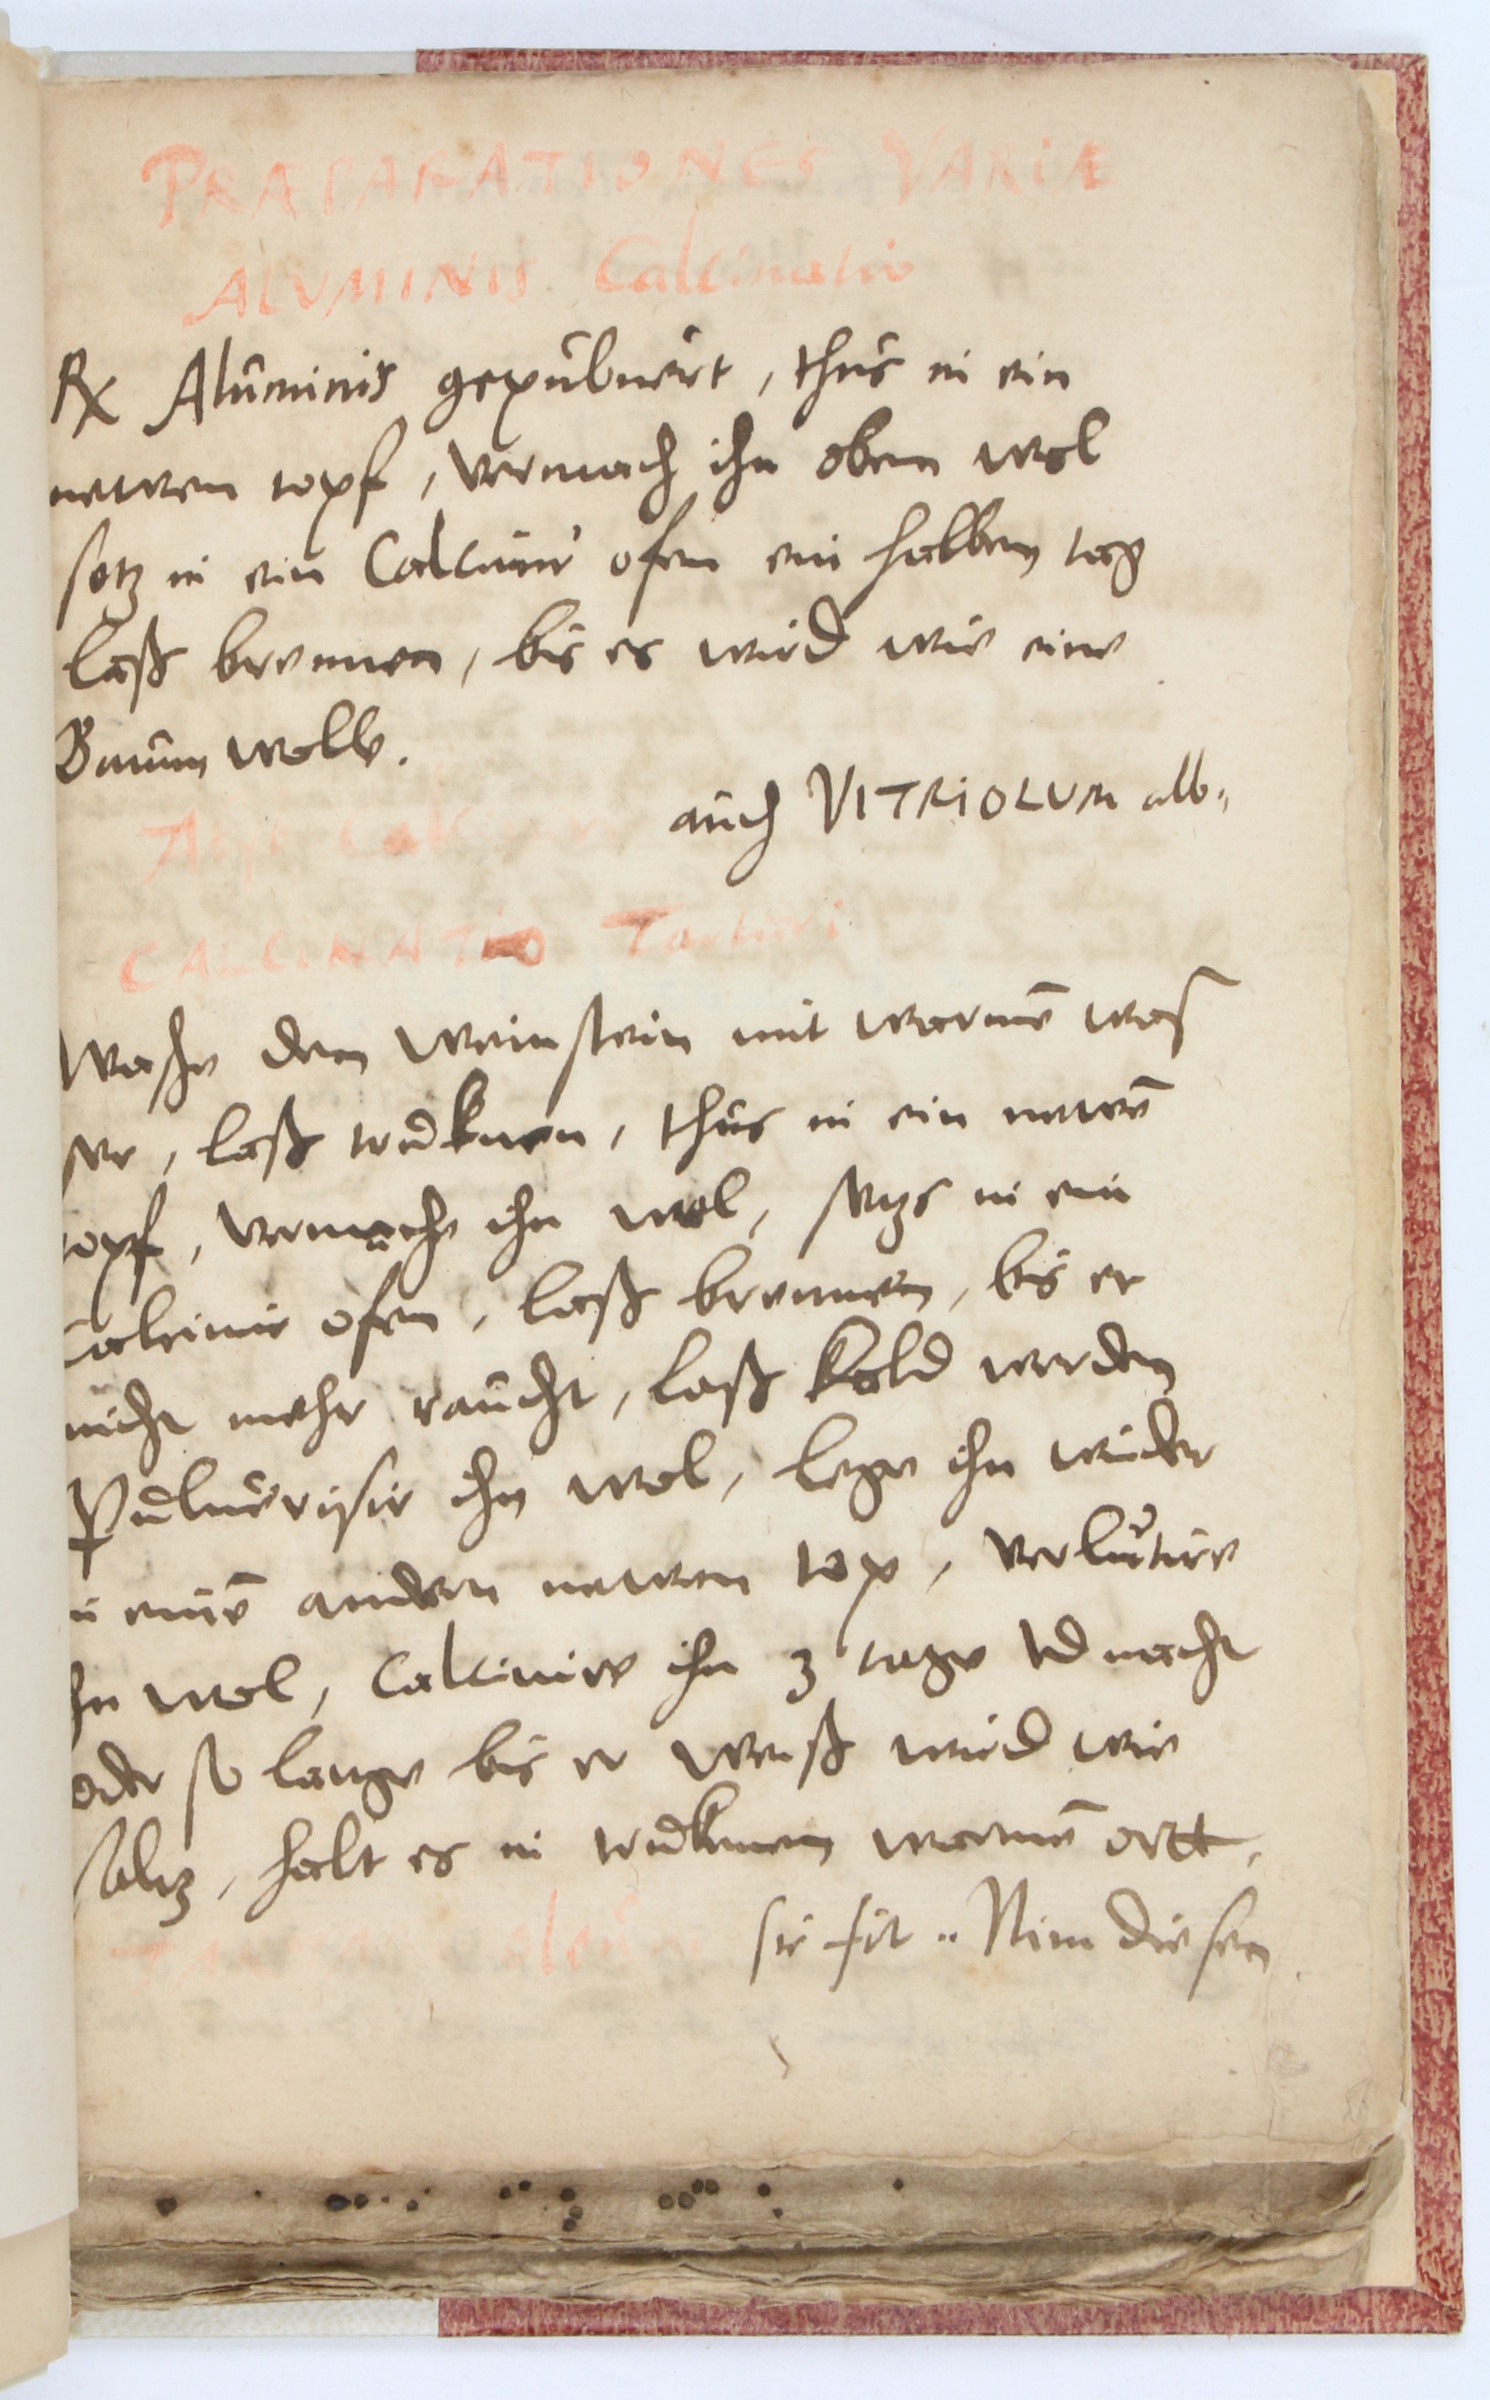 PRÆPARATIONES VARIÆ
ALVMINIS Calcinatio
℞ Aluminis gepuluert, thus in ein
newen topf, vermach ihn oben wol
setz in ein Calcinir ofen ein halben tag
laß brennen, bis es wird wie eine
Baumwolle.
auch VITRIOLUM alb.
CALCINATIO Tartari
Wasche den weinstein mit warmē was
ser, laß trucknen, thus in ein newē
topf, vermache ihn wol, setzs in ein
Calcinir ofen, laß brennen, bis er
nicht mehr raucht, laß kald werden
Puluerisir ihn wol, lege ihn wider
in einē andern newen top, verlutire
ihn wol, Calcinire ihn 3 tage vnd nacht
oder so lange bis er weiß wird wie
saltz, halt es in trucknem warmē ortt,
sic fit .. Nim diesen